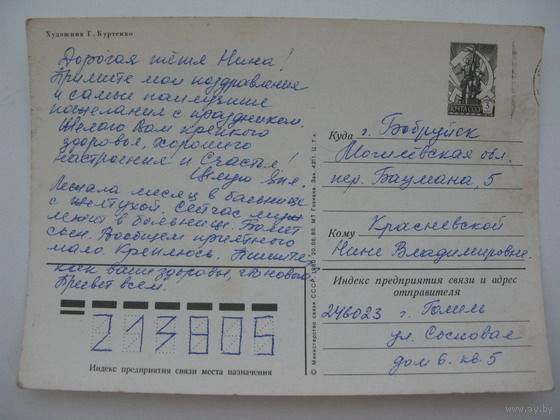 Художник Г. Куртенко
Дорогая тётя Нина!
Примите мои поздравления
и самые наилучшие
пожелания с праздником.
Желаю Вам крепкого
здоровья, хорошего
настроения и Счастья!
Целую Яня.
Лежала месяц в больнице
с желтухой. Сейчас муж
лежит в больнице. Болит
сын. Вообщем приятного
мало. Креплюсь. Пишите
как ваше здоровье, что нового
Привет всем.
213805
Индекс предприятия связи места назначения
© Министерство связи СССР. 20.06.80. МТ Гознака. Зак. 4211. Ц. 7 к.
ПОЧТА СССР
Куда г. Бобруйск
Могилёвская обл.
пер. Баумана, 5
Кому Красневской
Нине Владимировне.
Индекс предприятия связи и адрес
отправителя
246023 г. Гомель
ул. Сосновая
дом 6. кв. 5
ay.by